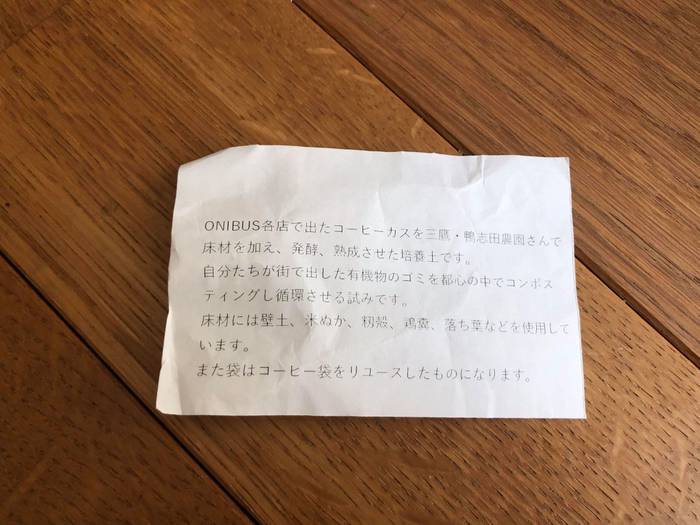 ONIBUS各店で出たコーヒーカスを三鷹・鴨志田農園さんで
床材を加え、発酵、熟成させた培養土です。
自分たちが街で出した有機物のゴミを都心の中でコンポス
ティングし循環させる試みです。
床材には壁土、米ぬか、籾殻、鶏糞、落ち葉などを使用して
います。
また袋はコーヒー袋をリユースしたものになります。